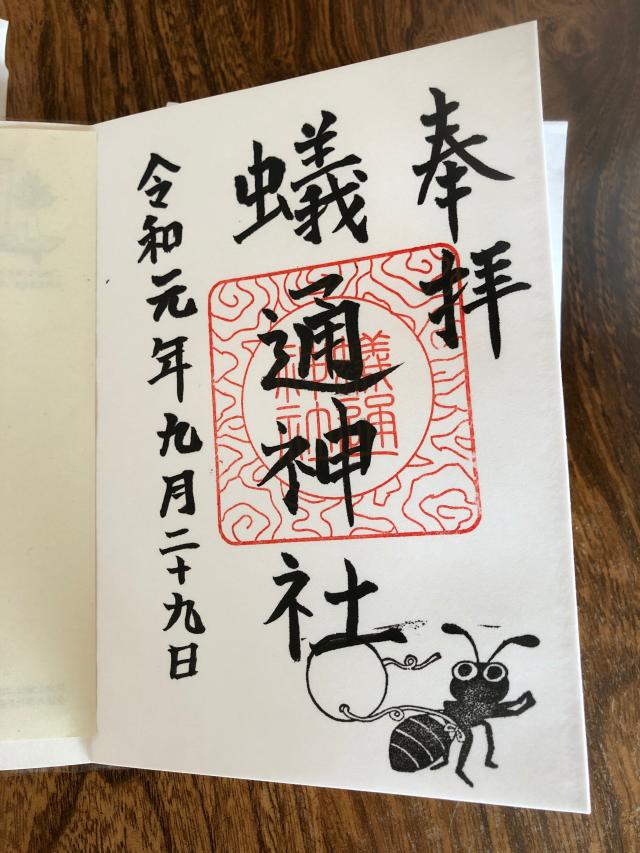 奉拝
蟻通神社
令和元年九月二十九日
蟻通
神社